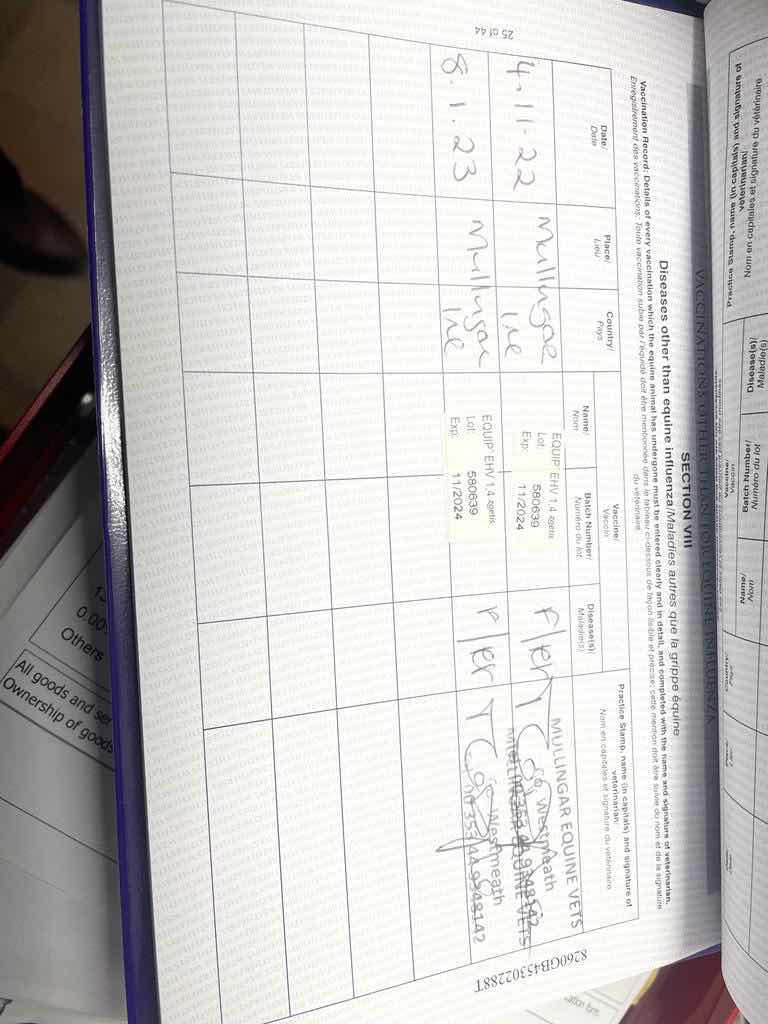 SECTION VIII
Diseases other than equine influenza/Maladies autres que la grippe équine
Vaccination Record: Details of every vaccination which the equine animal has undergone must be entered clearly and in detail, and completed with the name and signature of veterinarian.
Enregistrement des vaccinations: Toute vaccination subie par l'équidé doit être mentionnée dans le tableau ci-dessous de façon lisible et précise; cette mention doit être suivie du nom et de la signature
du vétérinaire.
Date/
Date
Place/
Lieu
Country/
Pays
Vaccine/
Vaccin
Name/
Nom
Batch Number/
Numéro du lot
Disease(s)/
Maladie(s)
Practice Stamp, name (in capitals) and signature of
veterinarian/
Nom en capitales et signature du vétérinaire
4.11.22
Mullingar
Ire
EQUIP EHV 1,4 zoetis
Lot: 580639
Exp: 11/2024
MULLINGAR EQUINE VETS
Co Westmeath
8.1.23
Mullingar
Ire
EQUIP EHV 1,4 zoetis
Lot: 580639
Exp: 11/2024
EQUINE VETS
Co Westmeath
00 353 44 9348142
25 of 44
8260GB45302288T
VACCINATIONS OTHER THAN FOR EQUINE INFLUENZA
Practice Stamp, name (in capitals) and signature of
veterinarian/
Nom en capitales et signature du vétérinaire
Disease(s)/
Maladie(s)
Batch Number/
Numéro du lot
Name/
Nom
Others
All goods and
Ownership of goods